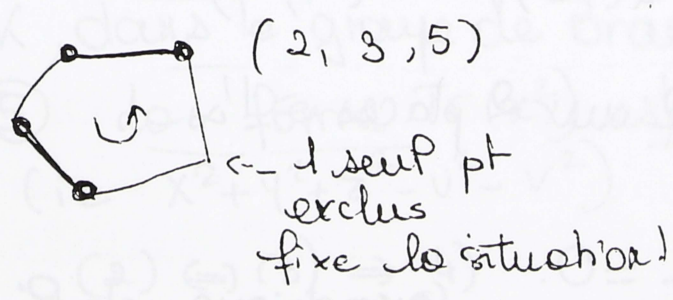 (2, 3, 5)
<-- 1 seul pt
exclus
fixe la situation!